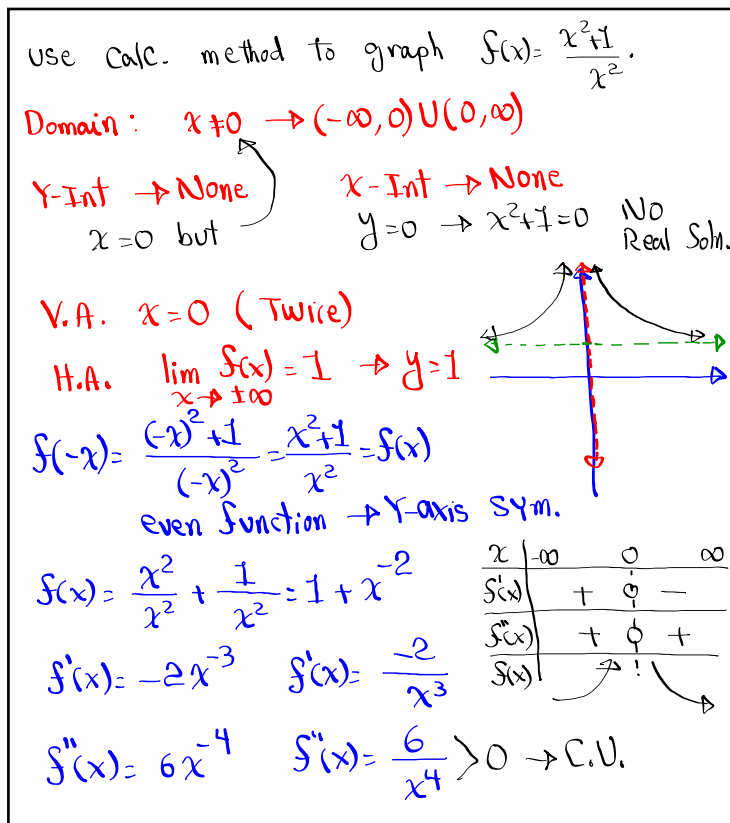 use Calc. method to graph f(x)= x²+1/x².
Domain: x≠0 → (-∞,0)∪(0,∞)
Y-Int → None
x=0 but
X-Int → None
y=0 → x²+1=0 No Real Soln.
V.A. x=0 (Twice)
H.A. lim x→±∞ f(x)=1 → y=1
f(-x)= (-x)²+1/(-x)² = x²+1/x² = f(x)
even function → Y-axis Sym.
f(x)= x²/x² + 1/x² = 1+x⁻²
f'(x)= -2x⁻³ f'(x)= -2/x³
f''(x)= 6x⁻⁴ f''(x)= 6/x⁴ >0 → C.U.
x -∞ 0 ∞
f'(x) + o −
f''(x) + o +
f(x)